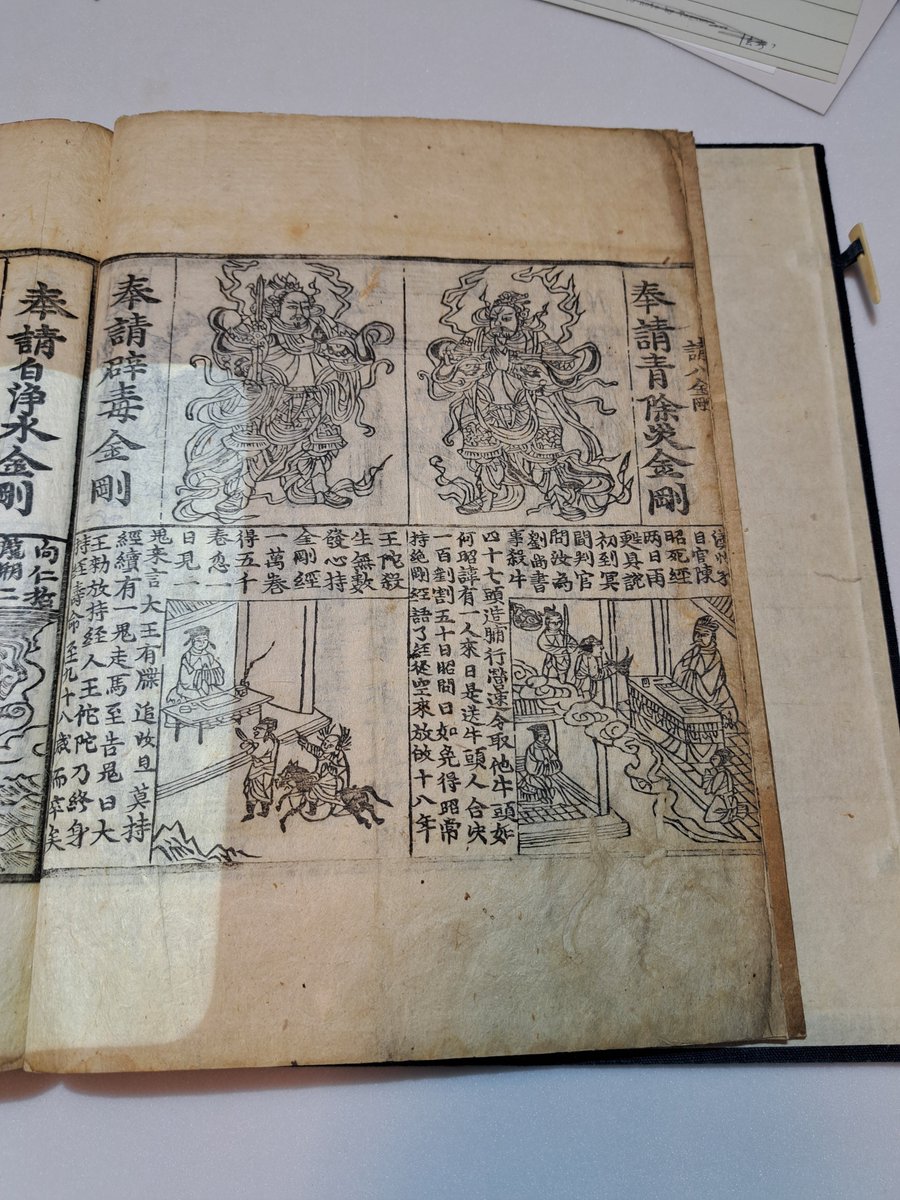 請八金剛
奉請青除灾金剛
州孔
目官陳
昭死經
两日再
甦具說
初到冥
間判官
問汝為
劉尚書
事殺牛
四十七頭造脯行速令取他牛頭如
何昭諱有一人來曰是送牛頭人合决
一百割五十日昭問曰如免得昭常
持剛經語了經從空來放故十八年
奉請辟毒金剛
王陀殺
生無數
發心持
金剛經
一萬卷
得五千
卷忽
日見二
鬼来言大王有牒追攸且莫持
經續有一鬼走馬至告鬼曰大
王勑放持經人王佗陀乃終身
持經壽命至九十八歲而卒矣
奉請白浄水金剛
向仁悊
龍朔二